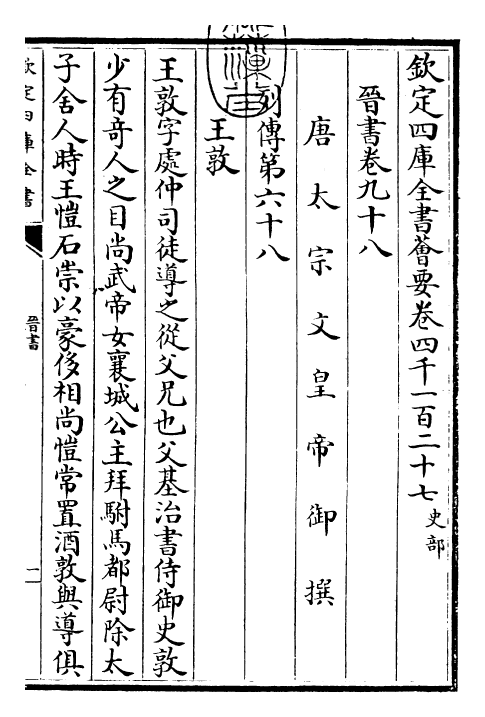 欽定四庫全書薈要卷四千一百二十七史部
晉書卷九十八
唐太宗文皇帝御撰
列傳第六十八
王敦
王敦字處仲司徒導之從父兄也父基治書侍御史敦
少有奇人之目尚武帝女襄城公主拜駙馬都尉除太
子舍人時王愷石崇以豪侈相尚愷常置酒敦與導俱
欽定四庫全書
晉書
一